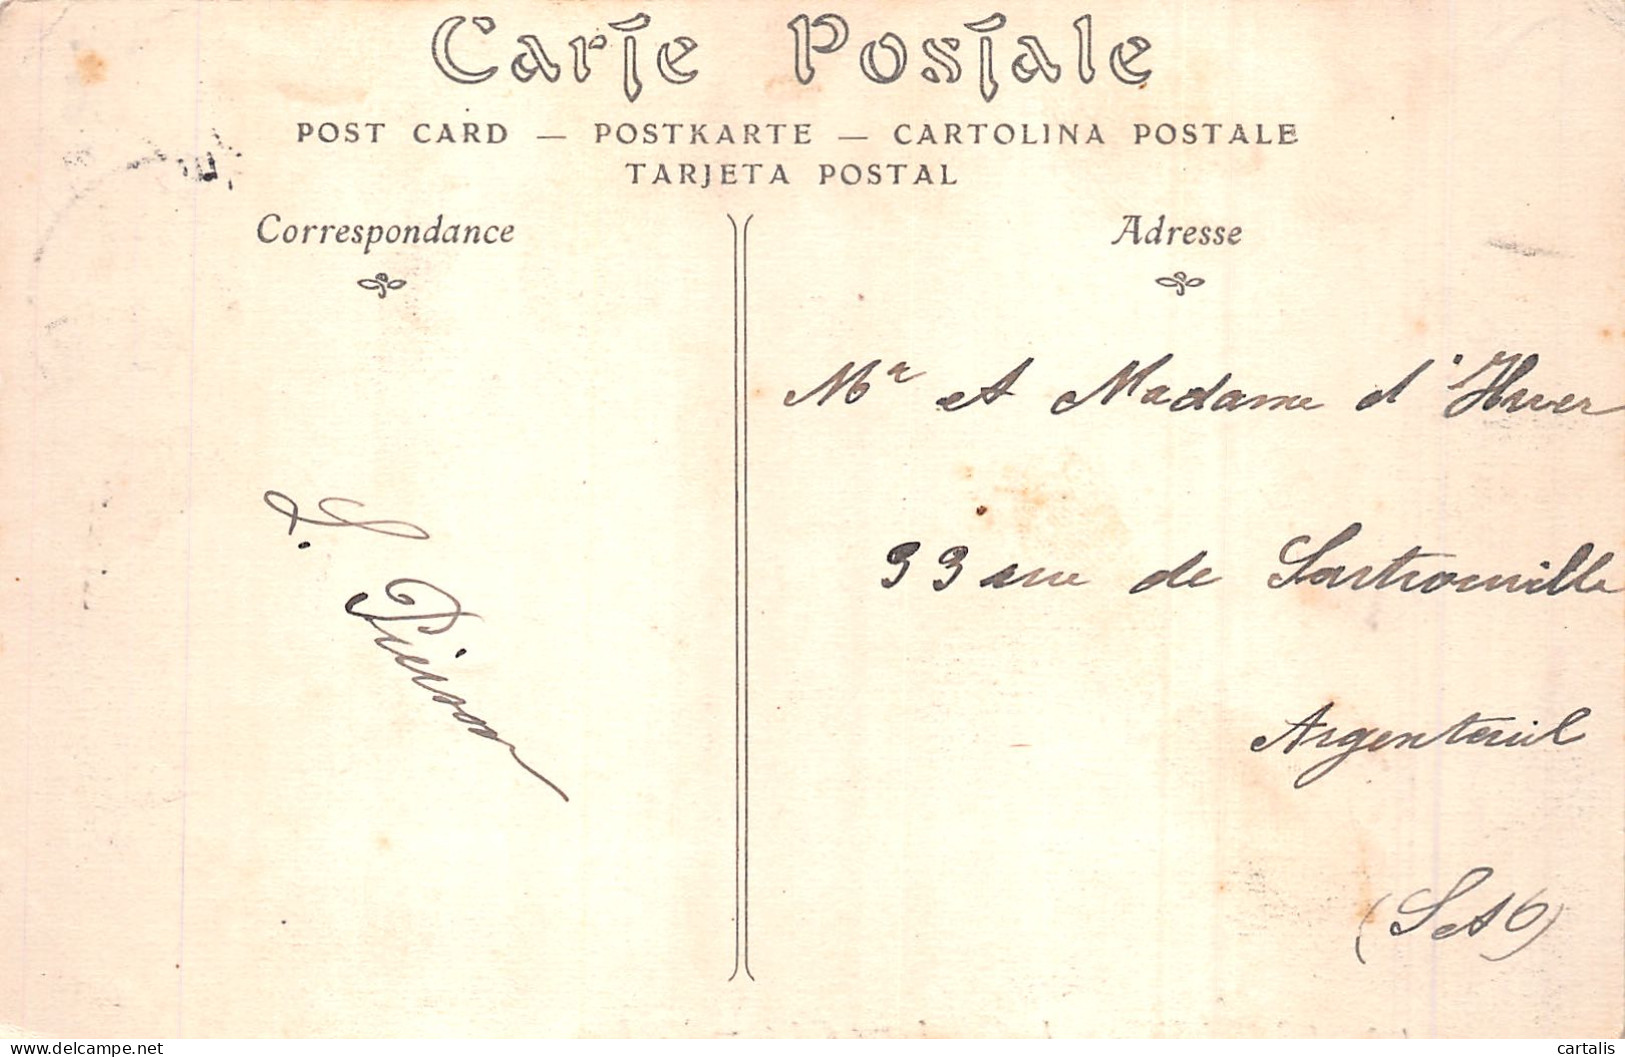 Carte Postale
POST CARD — POSTKARTE — CARTOLINA POSTALE
TARJETA POSTAL
Correspondance
Adresse
Mr et Madame d'
33 rue de Sartrouville
Argenteuil
(S et O)
L.
www.delcampe.net
cartalis